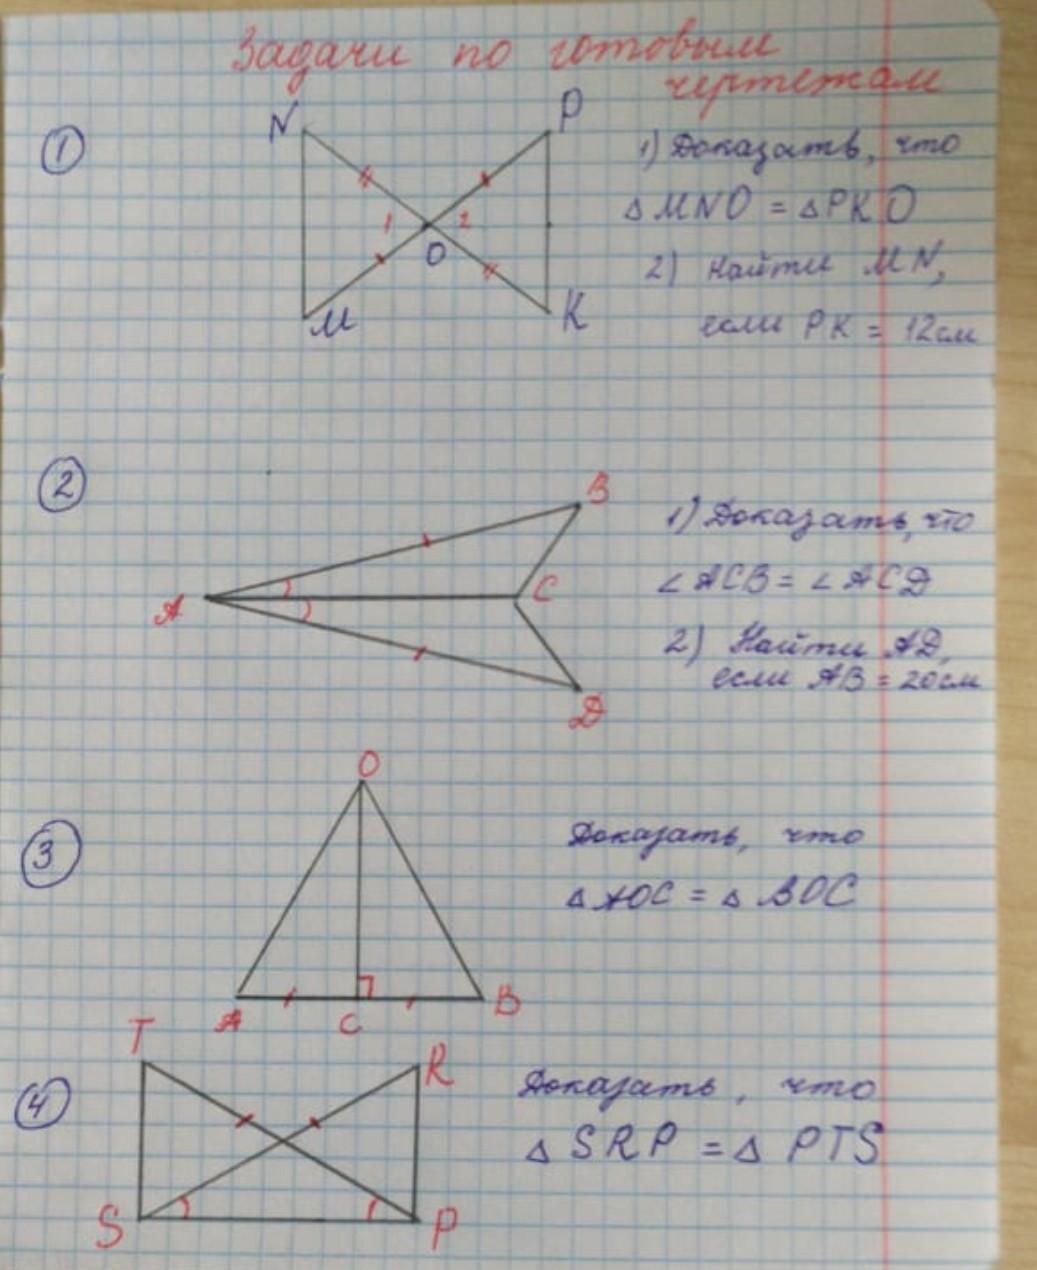 Задачи по готовым
чертежам
1
N
P
1
2
O
M
K
1) Доказать, что
△MNO = △PKO
2) Найти MN,
если PK = 12см
2
A
B
C
D
1) Доказать, что
∠ACB = ∠ACD
2) Найти AD,
если AB = 20см
3
O
A
C
B
Доказать, что
△AOC = △BOC
4
T
R
S
P
Доказать, что
△SRP = △PTS